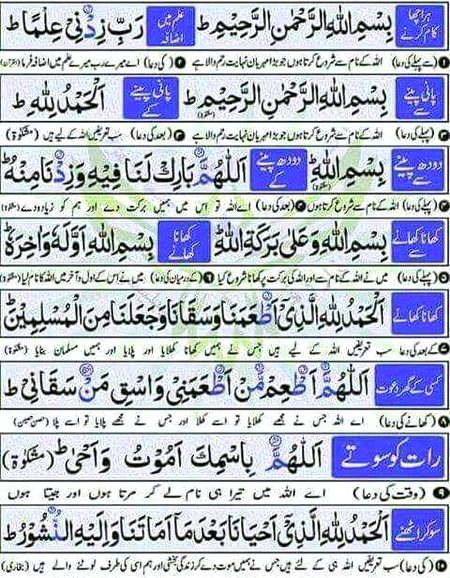 ہر اچھا کام کرنے بِسْمِ اللهِ الرَّحْمٰنِ الرَّحِيْمِ ط علم میں اضافہ رَبِّ زِدْنِیْ عِلْمًا ط
(سے پہلے کی دعا) اللہ کے نام سے شروع کرتا ہوں جو بڑا مہربان نہایت رحم والا ہے ۲ (کی دعا) اے میرے رب میرے علم میں اضافہ فرما
پانی پینے سے بِسْمِ اللهِ الرَّحْمٰنِ الرَّحِيْمِ ط پانی پینے کے اَلْحَمْدُ لِلّٰهِ ط
(پہلے کی دعا) اللہ کے نام سے شروع کرتا ہوں جو بڑا مہربان نہایت رحم والا ہے (بعد کی دعا) سب تعریفیں اللہ کے لیے ہیں (مشکوٰۃ)
دودھ پینے سے بِسْمِ اللهِ ط دودھ پینے کے اَللّٰهُمَّ بَارِكْ لَنَا فِيْهِ وَزِدْنَا مِنْهُ ط
(پہلے کی دعا) اللہ کے نام سے شروع کرتا ہوں (بعد کی دعا) اے اللہ تو اس میں ہمیں برکت دے اور ہم کو زیادہ دے
کھانا کھانے سے بِسْمِ اللهِ وَعَلٰى بَرَكَةِ اللهِ ط کھانا کھانے کے بِسْمِ اللهِ اَوَّلَهٗ وَاٰخِرَهٗ ط
۵ (پہلے کی دعا) میں نے اللہ کے نام سے اور اللہ کی برکت پر کھانا شروع کیا ۶ (کے درمیان کی دعا) میں نے اس کے اول و آخر میں اللہ کا نام لیا
کھانا کھانے اَلْحَمْدُ لِلّٰهِ الَّذِیْ اَطْعَمَنَا وَسَقَانَا وَجَعَلَنَا مِنَ الْمُسْلِمِيْنَ ط
کے بعد کی دعا سب تعریفیں اللہ کے لیے ہیں جس نے ہمیں کھانا کھلایا اور پلایا اور ہمیں مسلمان بنایا (مشکوٰۃ)
کسی کے گھر دعوت اَللّٰهُمَّ اَطْعِمْ مَّنْ اَطْعَمَنِیْ وَاسْقِ مَنْ سَقَانِیْ ط
۸ (کھانے کی دعا) اے اللہ جس نے مجھے کھلایا تو اسے کھلا اور جس نے مجھے پلایا تو اسے پلا (حصن حصین)
رات کو سوتے اَللّٰهُمَّ بِاسْمِكَ اَمُوْتُ وَاَحْیٰ ط (مشکوٰۃ)
۹ (وقت کی دعا) اے اللہ میں تیرا ہی نام لے کر مرتا ہوں اور جیتا ہوں
سو کر اٹھنے اَلْحَمْدُ لِلّٰهِ الَّذِیْ اَحْيَانَا بَعْدَ مَآ اَمَاتَنَا وَاِلَيْهِ النُّشُوْرُ ط
۱۰ (کی دعا) سب تعریفیں اللہ ہی کے لئے ہیں جس نے ہمیں موت دے کر زندگی بخشی اور ہم اسی کی طرف لوٹنے والے ہیں (بخاری)